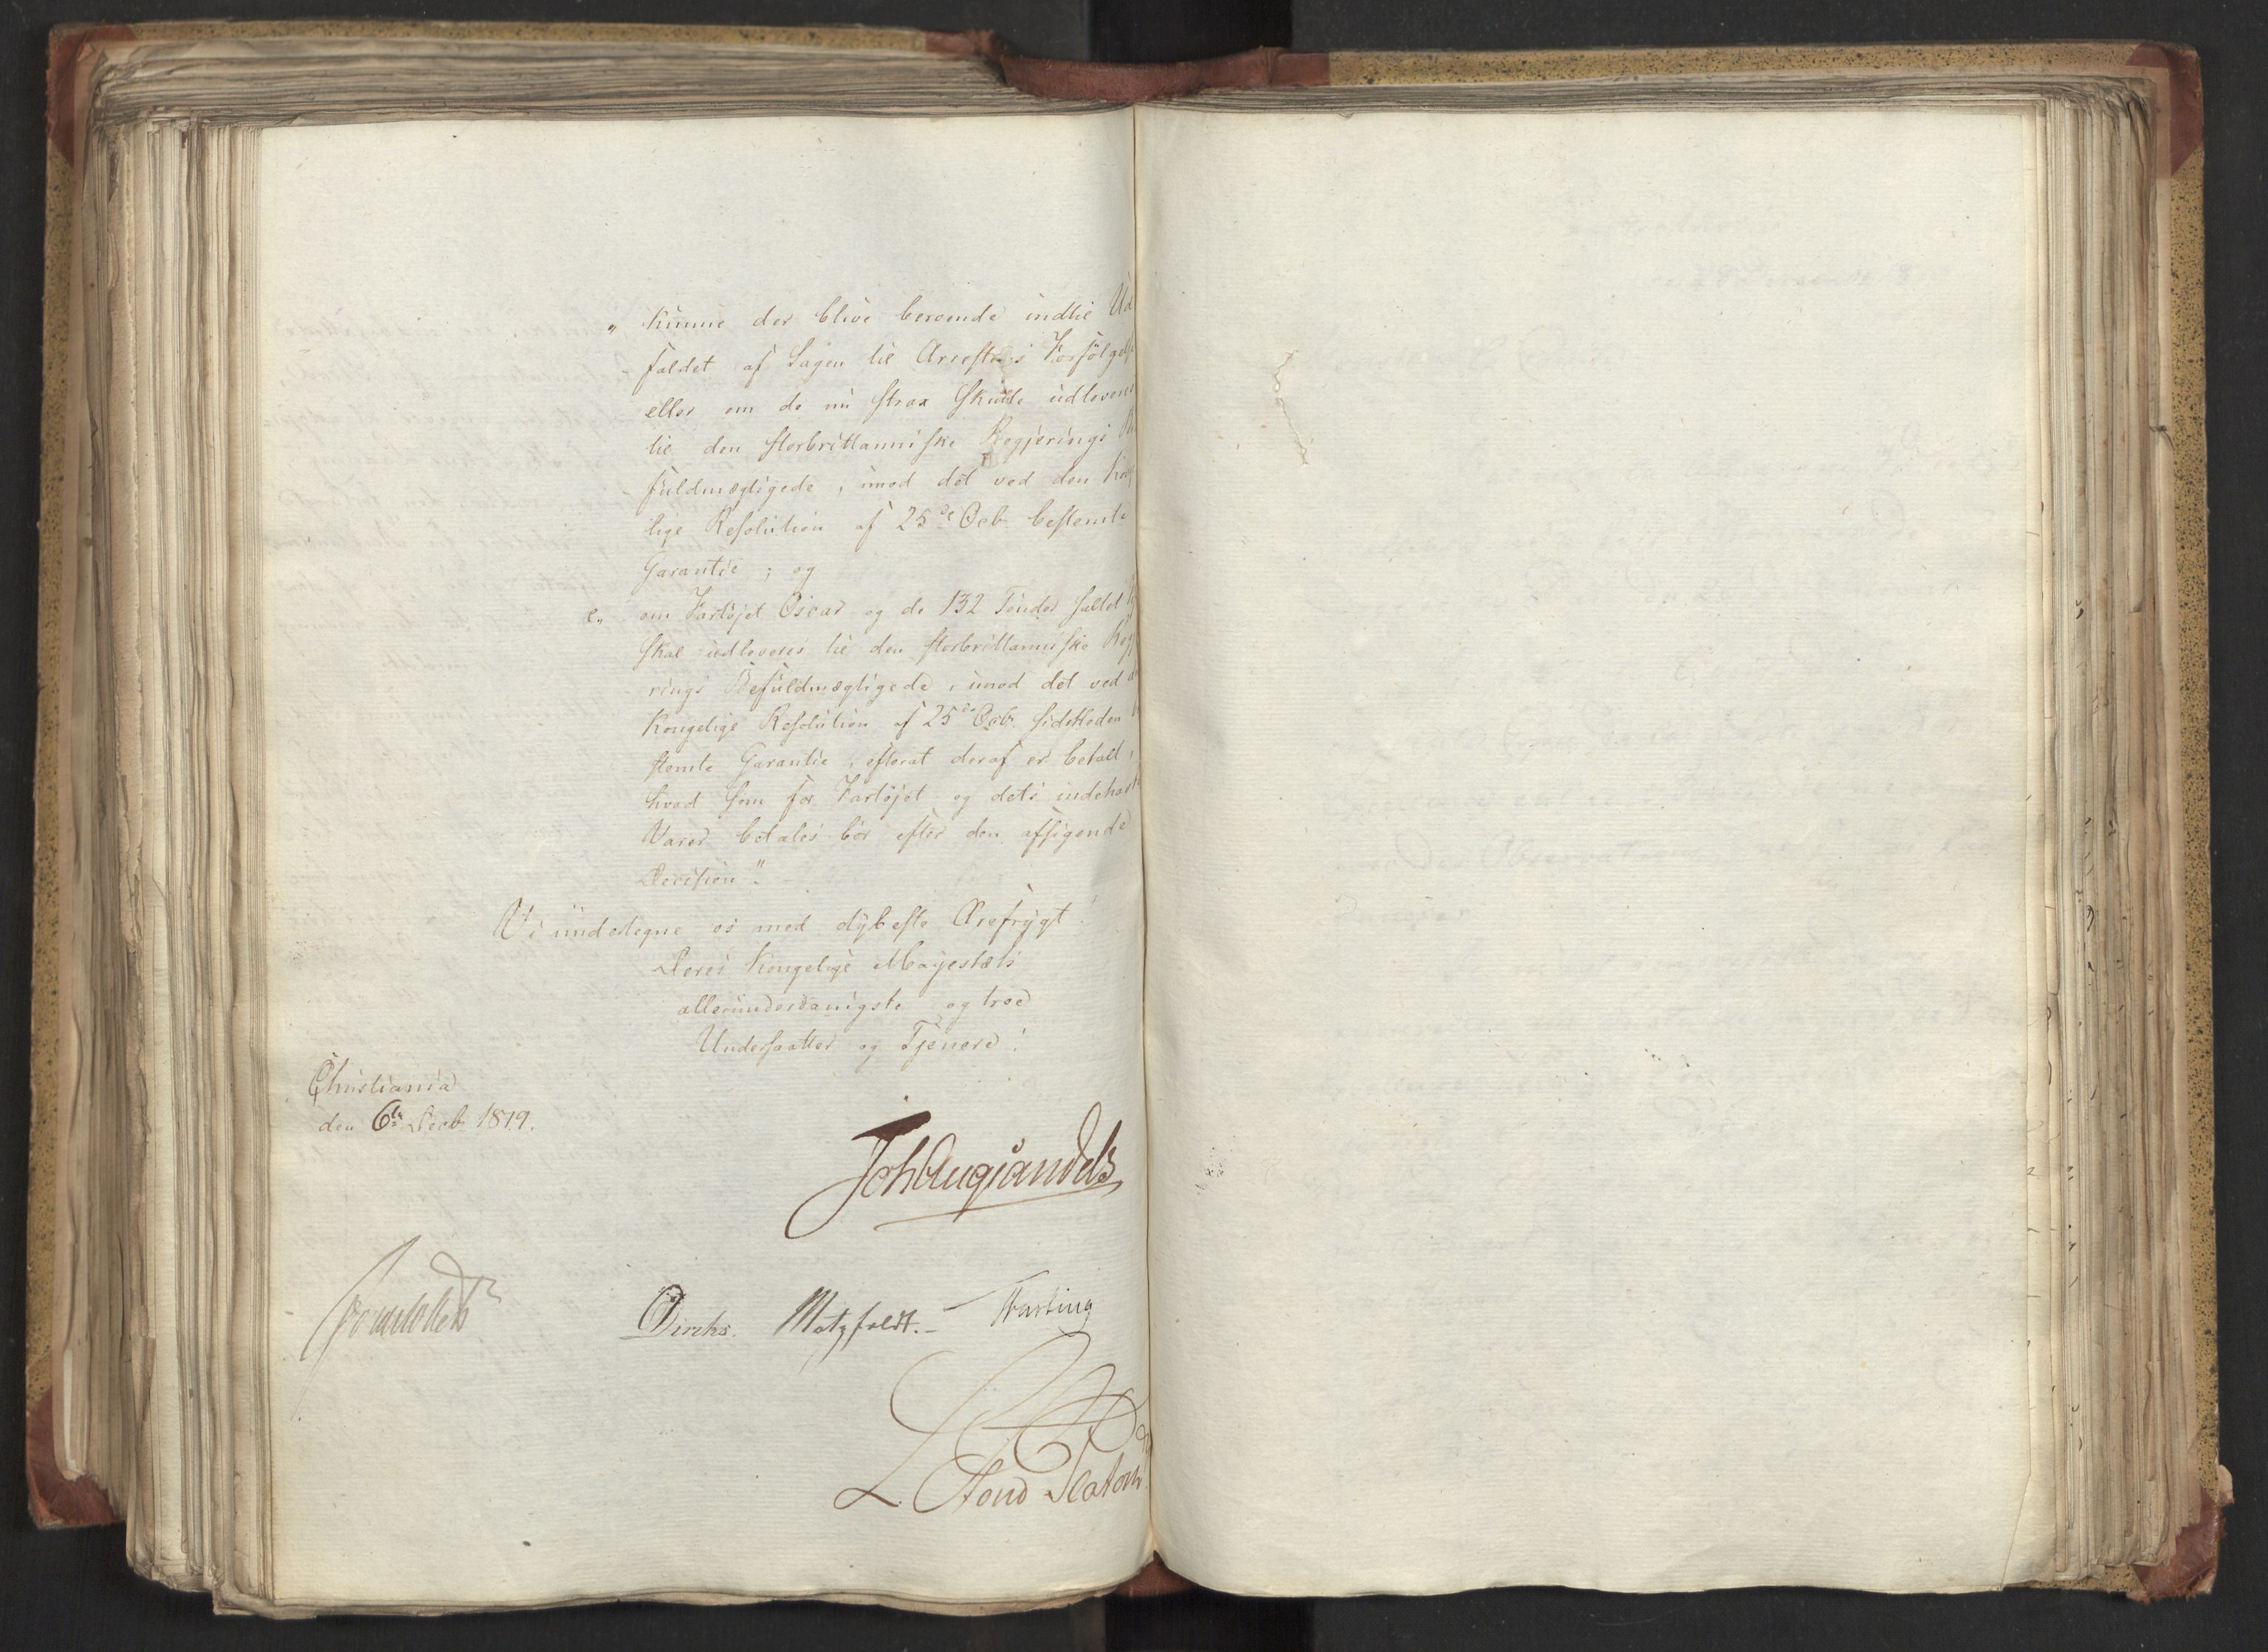 " kunne der blive beroende indtil Ud
faldet af Sagen til Arrestens Forfølgelse
eller om de nu strax skulle udleveres
til den storbrittanniske Regjerings Be
fuldmægtigede, imod det ved den Konge
lige Resolution af 25de Octbr bestemte
Garantie ; og
e, om Fartøjet Oscar og de 132 Tønder saltet
skal udleveres til den storbrittanniske Regje
rings Befuldmægtigede, imod det ved den
Kongelige Resolution af 25de Octbr. sidstleden be
stemte Garantie, efterat deraf er betalt,
hvad som for Fartøjet og dets indehavte
Varer betales bør efter den afsigende
Decision".
Vi undertegne os med dybeste Ærefrygt!
Deres Kongelige Majestæts
allerunderdanigste og troe
Undersaatter og Tjenere!
Christiania
den 6te Decbr 1819.
JohAugSandels
Sommerfeldt
Diriks. Motzfeldt. – Fasting
L. Stoud Platou